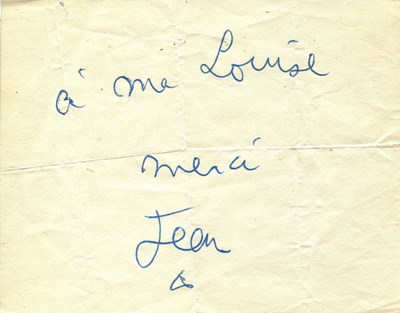 à ma Louise
merci
Jean